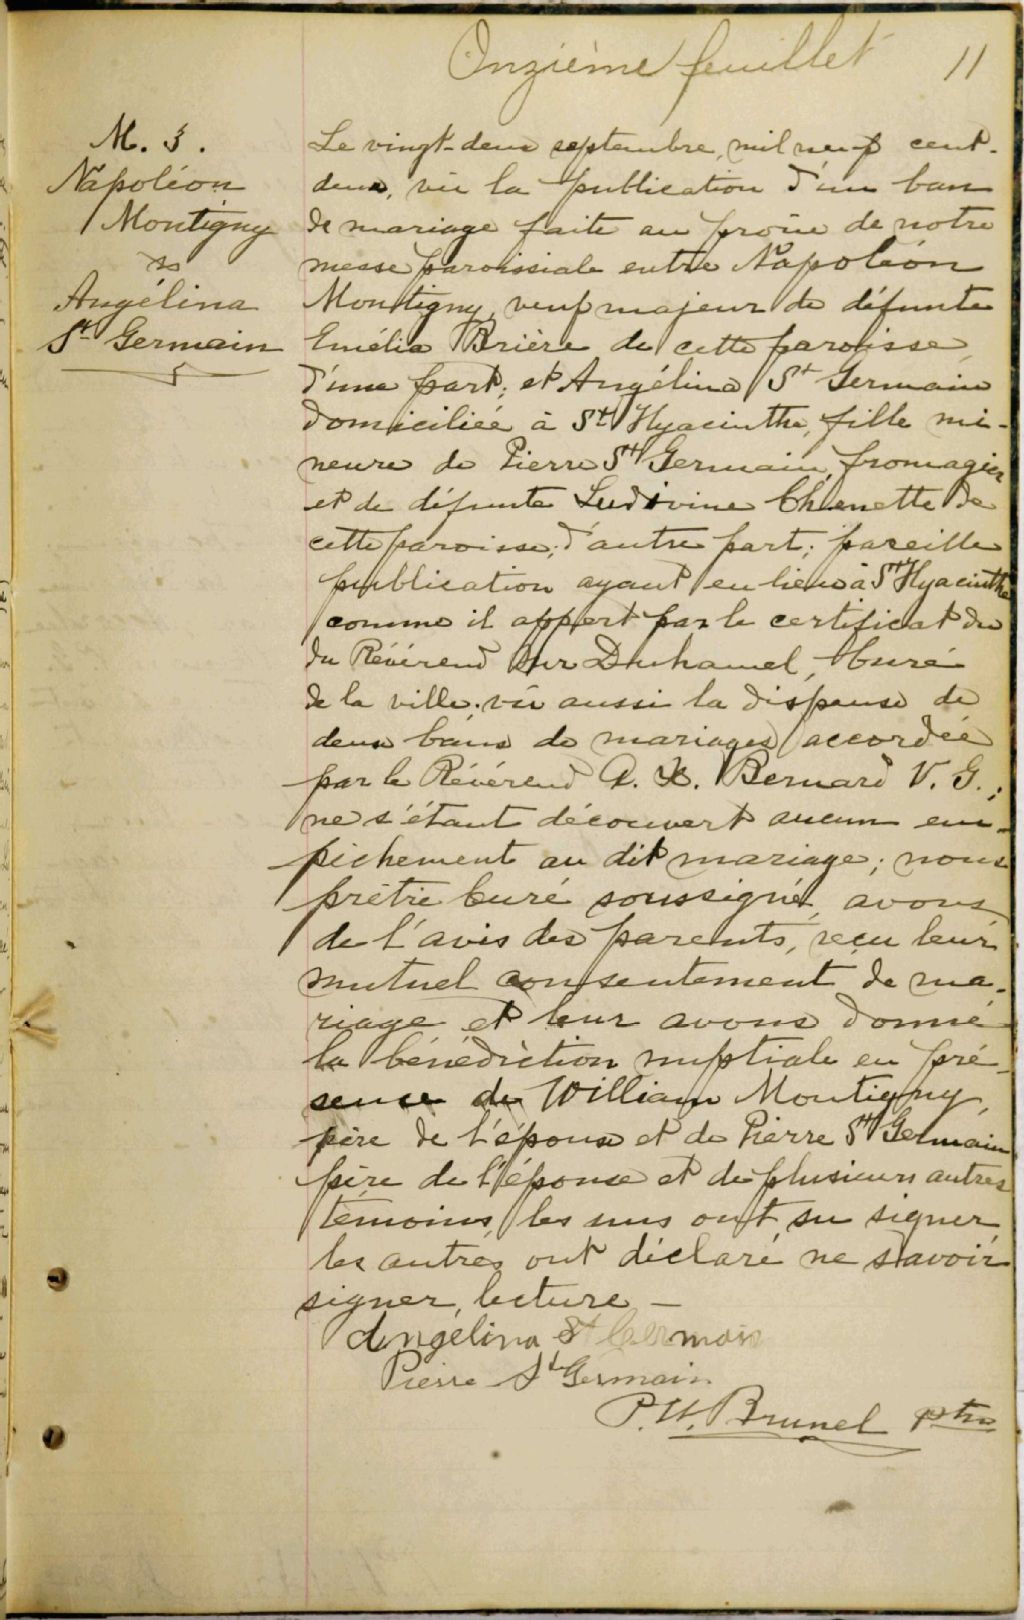 Onzième feuillet 11
M. 3.
Napoléon
Montigny
&
Angélina
St Germain
Le vingt-deux septembre, mil neuf cent-
deux, vu la publication d'un ban
de mariage faite au prône de notre
messe paroissiale entre Napoléon
Montigny, veuf majeur de défunte
Emélia Brière de cette paroisse,
d'une part; et Angélina St Germain
domiciliée à St Hyacinthe, fille mi-
neure de Pierre St Germain, fromagier
et de défunte Ludivine Chenette de
cette paroisse; d'autre part; pareille
publication ayant eu lieu à St Hyacinthe
comme il appert par le certificat du
du Révérend Duhamel, Curé
de la ville; vu aussi la dispense de
deux bans de mariages accordée
par le Révérend A. X. Bernard V. G.;
ne s'étant découvert aucun em-
pêchement au dit mariage; nous
prêtre Curé soussigné, avons,
de l'avis des parents, reçu leur
mutuel consentement de ma-
riage et leur avons donné
la bénédiction nuptiale en pré-
sence de William Montigny,
père de l'époux et de Pierre St Germain
père de l'épouse et de plusieurs autres
témoins, les uns ont su signer,
les autres ont déclaré ne savoir
signer, lecture —
Angélina St Germain
Pierre St Germain
P. H. Brunel ptre